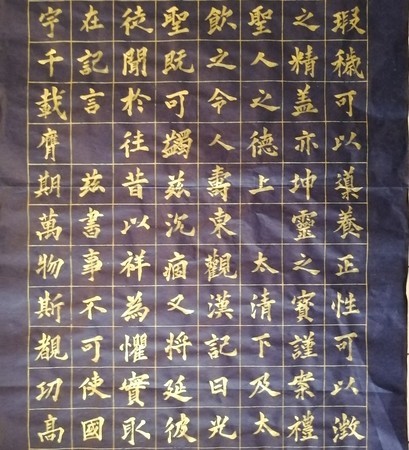 瑕穢可以導養正性可以澂
之精盖亦坤靈之寶謹案禮
聖人之德上太清下及太
飲之令人壽東觀漢記曰光
聖既可蠲茲沉痼又將延彼
徒聞於往昔以祥為懼實取
在記言茲書事不可使國
宇千載膺期萬物斯覩功高